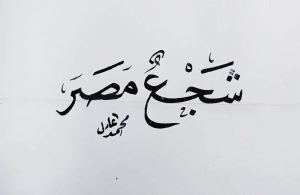 شَجْعُ مَصَرَ
محمد عادل